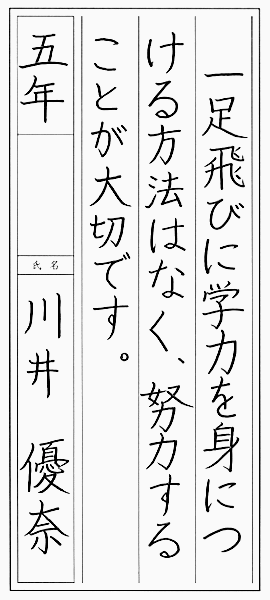 一足飛びに学力を身につ
ける方法はなく、努力する
ことが大切です。
五年
氏名
川井 優奈